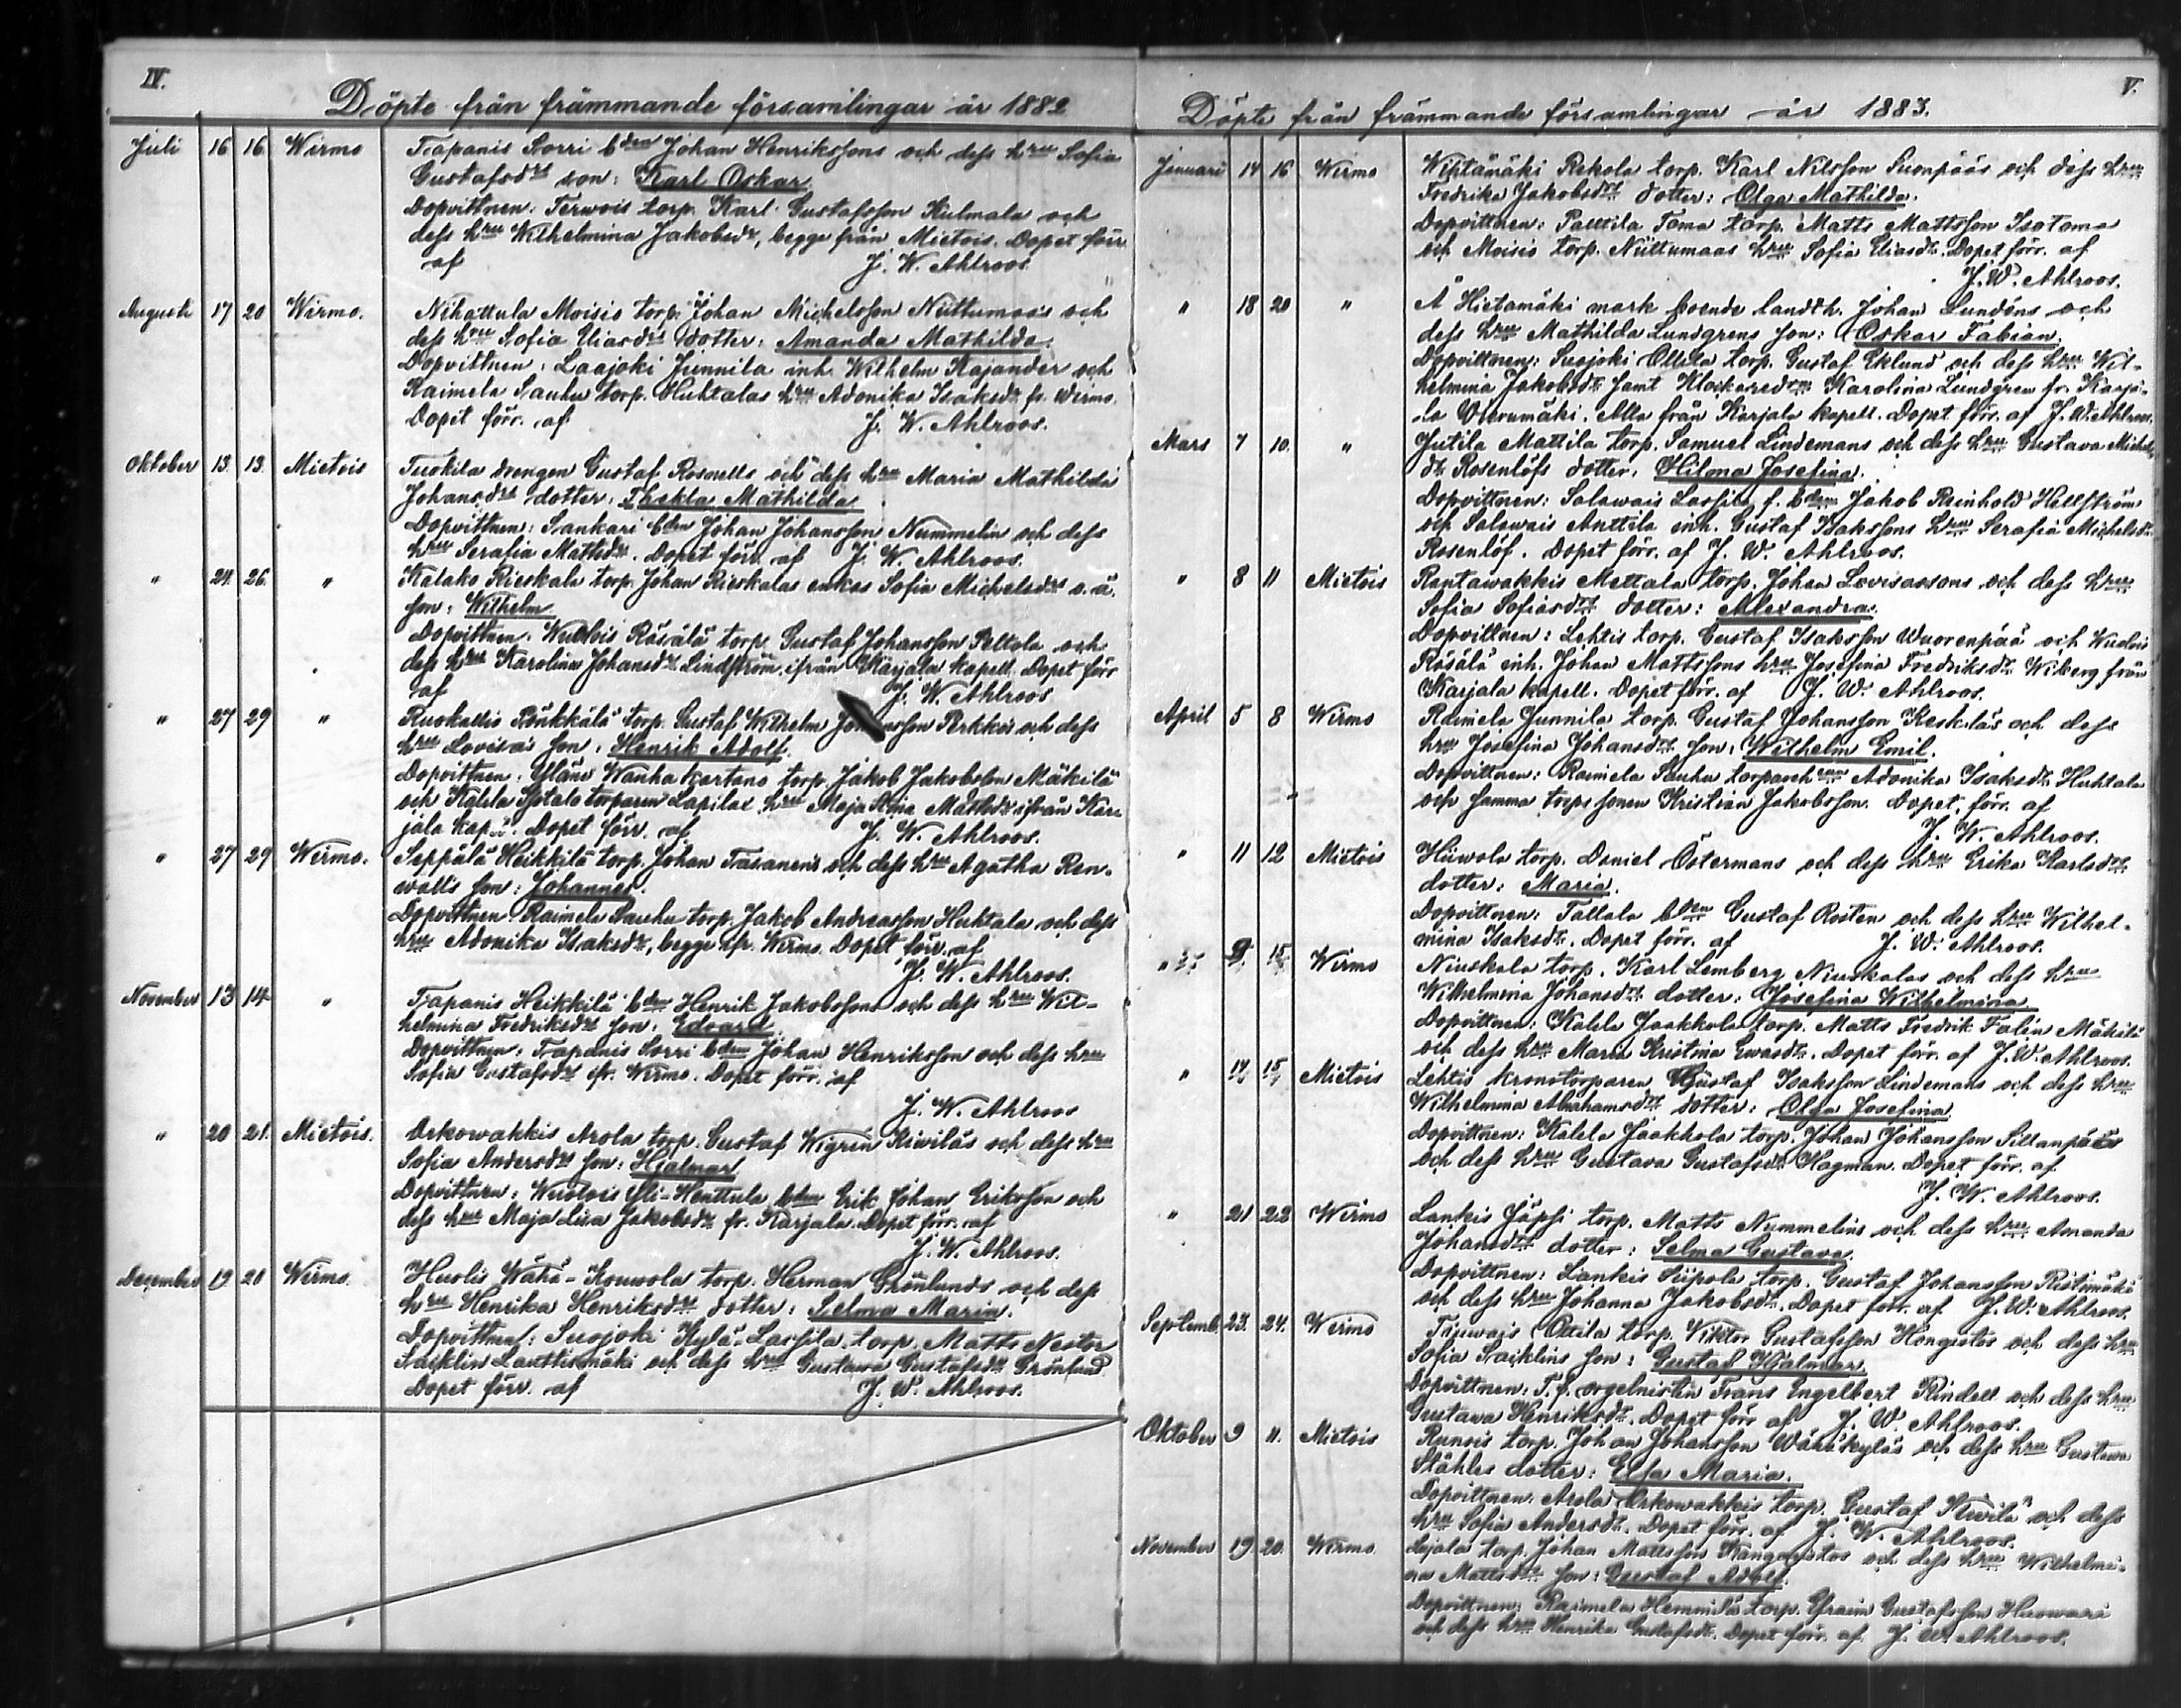 IV.
Döpte från främmande församlingar år 1882
Juli 16 16 Wirmo Tapanis Sorri bden Johan Henrikssons och dess hru Sofia
Gustafsdrs son: Karl Oskar.
Dopvittnen: Terwois torp. Karl Gustafsson Kulmala och
dess hru Wilhelmina Jakobsdr, begge från Mietois. Dopet förr.
af J. W. Ahlroos.
Augusti 17 20 Wirmo. Nihattula Moisio torp. Johan Michelsson Niittumaas och
dess hru Sofia Eliasdrs dotter: Amanda Mathilda.
Dopvittnen: Laajoki Junnila inh. Wilhelm Kajander och
Raimela Sauhu torp. Huhtalas hru Adonika Isaksdr fr. Wirmo.
Dopet förr. af J. W. Ahlroos.
Oktober 13. 13. Mietois Tuokila drengen Gustaf Rosnells och dess hru Maria Mathilda
Johansdrs dotter: Thekla Mathilda
Dopvittnen: Sankari bden Johan Johansson Nummelin och dess
hru Serafia Mattsdr. Dopet förr. af J. W. Ahlroos.
" 24. 26. " Kalako Rieskala torp. Johan Rieskalas enkas Sofia Michelsdrs o. ä.
son: Wilhelm
Dopvittnen: Räsälä torp. Gustaf Johansson Peltola och
dess hru Karolina Johansdr Lindström, ifrån Karjala kapell. Dopet förr
af J. W. Ahlroos
" 27 29 " Ruokallis Rönkkälä torp. Gustaf Wilhelm Johansson Perkkiö och dess
hru Lovisas son: Henrik Adolf.
Dopvittnen: Yläne Wanhakartano torp. Jakob Jakobsson Mäkilä
och Kalela torparen hru Maja Stina Mattsdr ifrån Kar-
jala kap. Dopet förr. af J. W. Ahlroos.
" 27 29 Wirmo. Seppälä Heikkilä torp. Johan Tasanens och dess hru Agatha Ren-
walls son: Johannes.
Dopvittnen: Raimela Sauhu torp. Jakob Andreasson Huhtala och dess
hru Adonika Isaksdr, begge fr. Wirmo. Dopet förr. af
J. W. Ahlroos.
November 13 14 " Tapanis Heikkilä bden Henrik Jakobssons och dess hru Wil-
helmina Fredriksdrs son: Edvard.
Dopvittnen: Tapanis Sorri bden Johan Henriksson och dess hru
Sofia Gustafsdr fr. Wirmo. Dopet förr. af
J. W. Ahlroos
" 20 21. Mietois. Orkowakkis Arola torp. Gustaf Wigren Kiviläs och dess hru
Sofia Andersdrs son: Hjalmar
Dopvittnen: Yli-Henttula bden Erik Johan Eriksson och
dess hru Maja Lisa Jakobsdr fr. Karjala. Dopet förr. af
J. W. Ahlroos.
December 19 20 Wirmo. Huolis Wähä-Kouwola torp. Herman Grönlunds och dess
hru Henrika Henriksdrs dotter: Selma Maria.
Dopvittnen: Susjoki Kylä-Lassila torp. Matts Nestor
Saiklin Lauttismäki och dess hru Gustawa Gustafsdr Grönlund
Dopet förr. af J. W. Ahlroos.
V.
Döpte från främmande församlingar år 1883.
Januari 14 16 Wirmo Wihtämäki Rekola torp. Karl Nilsson Suonpääs och dess hru
Fredrika Jakobsdrs dotter: Olga Mathilda.
Dopvittnen: Palttila Toma torp. Matts Mattsson Isotoma
och Moisio torp. Niittumaas hru Sofia Eliasdr. Dopet förr. af
J. W. Ahlroos.
" 18 20 " Å Hietamäki mark boende landth. Johan Lundéns och
dess hru Mathilda Lundgrens son: Oskar Fabian.
Dopvittnen: Susjoki Ollila torp. Gustaf Eklund och dess hru Wil-
helmina Jakobsdr samt Karolina Lundgren fr. Karja-
la Vierumäki. Alla från Karjala kapell. Dopet förr. af J. W. Ahlroos.
Mars 7 10. " Jutila Mattila torp. Samuel Lindemans och dess hru Gustava Michels-
dr Rosenlöfs dotter: Hilma Josefina.
Dopvittnen: Salawais Lassila f. bden Jakob Reinhold Hellström
och Salawais Anttila inh. Gustaf Isakssons hru Serafia Michelsdr
Rosenlöf. Dopet förr. af J. W. Ahlroos.
" 8 11 Mietois Rantawakkis Mettala torp. Johan Lovisassons och dess hru
Sofia Sofiasdrs dotter: Alexandra.
Dopvittnen: Lehtis torp. Gustaf Isaksson Wuorenpää och
Räsälä inh. Johan Mattssons hru Josefina Fredriksdr Wiberg från
Karjala kapell. Dopet förr. af J. W. Ahlroos.
April 5 8 Wirmo Raimela Junnila torp. Gustaf Johansson Keskiläs och dess
hru Josefina Johansdrs son: Wilhelm Emil.
Dopvittnen: Raimela Sauhu torparehrun Adonika Isaksdr Huhtala
och samma torps sonen Kristian Jakobsson. Dopet förr. af
J. W. Ahlroos.
" 11 12 Mietois Hüwola torp. Daniel Östermans och dess hru Erika Karlsdrs
dotter: Maria.
Dopvittnen: Tallola bden Gustaf Rosten och dess hru Wilhel-
mina Isaksdr. Dopet förr. af J. W. Ahlroos.
" 9. 15. Wirmo Niuskala torp. Karl Lemberg Niuskalas och dess hru
Wilhelmina Johansdrs dotter: Josefina Wilhelmina
Dopvittnen: Kalela Jaakkola torp. Matts Fredrik Falin Mäkilä
och dess hru Maria Kristina Ewasdr. Dopet förr. af J. W. Ahlroos.
" 14 15 Mietois Lehtis kronotorparen Gustaf Isaksson Lindemans och dess hru
Wilhelmina Abrahamsdrs dotter: Olga Josefina.
Dopvittnen: Kalela Jaakkola torp. Johan Johansson Sillanpää
och dess hru Gustava Gustafsdr Hagman. Dopet förr. af
J. W. Ahlroos.
" 21 22 Wirmo Lankis Jäpsi torp. Matts Nummelins och dess hru Amanda
Johansdrs dotter: Selma Gustava.
Dopvittnen: Lankis Siipola torp. Gustaf Johansson Ristimäki
och dess hru Johanna Jakobsdr. Dopet förr. af J. W. Ahlroos.
Septemb. 23. 24. Wirmo Ottila torp. Viktor Gustafsson Hongistos och dess hru
Sofia Saiklins son: Gustaf Hjalmar.
Dopvittnen: T. f. orgelnisten Frans Engelbert Rindell och dess hru
Gustava Henriksdr. Dopet förr. af J. W. Ahlroos.
Oktober 9 11. Mietois Runois torp. Johan Johansson Wähäkyläs och dess hru Gustava
Ståhles dotter: Elsa Maria.
Dopvittnen: Arola Orkowakkis torp. Gustaf Kivilä och dess
hru Sofia Andersdr. Dopet förr. af J. W. Ahlroos.
November 19 20. Wirmo torp. Johan Mattsson Kangasistos och dess hru Wilhelmi-
na Mattsdrs son: Gustaf Adolf.
Dopvittnen: Raimela Hemmilä torp. Efraim Gustafsson Huowari
och dess hru Henrika Gustafsdr. Dopet förr. af J. W. Ahlroos.